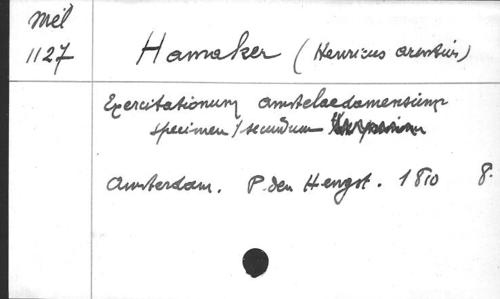 Mél
1127
Hamaker (Henricus arentius)
Exercitationum amstelaedamensium
specimen / secundum
Amsterdam. P. den Hengst. 1810 8.